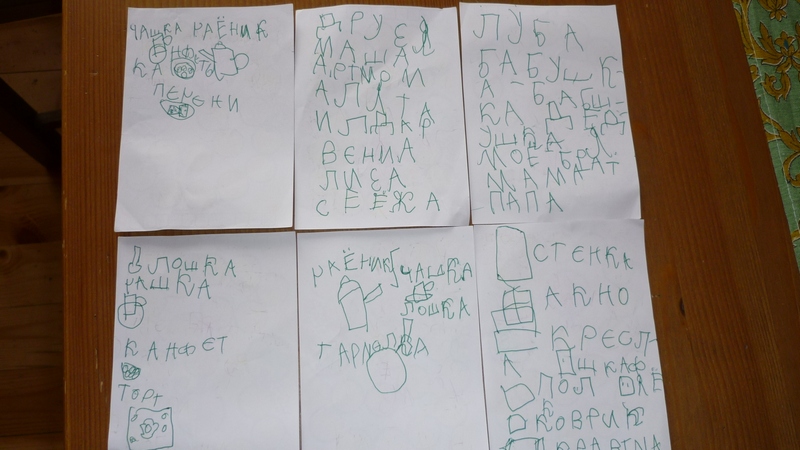 ЧАШКА ЧАЁНИК
КАНФЕТЫ
ПЕЧЕНИ
ДРУЗЯ
МАША Л
АРТЁМ М
АЛЛТА
ИЛДАР
ВЕНИА
ЛИЗА
СЕЁЖА
ЛУБА
БАБУШК-
А-БАБШ-
КА ДЕД-
УШКА Л
МОЁ БРАТ
МАМА
ПАПА
ЛОШКА
ЧАШКА
КАНФЕТ
ТОРТ
ЧАЁНИК ЧАШКА
ЛОШКА
СТЕНКА
АКНО
КРЕСЛ-
А ШКАФ
ПОЛ
КОВРИК